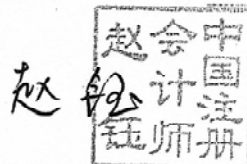 赵钰
中国注册
会计师
赵钰